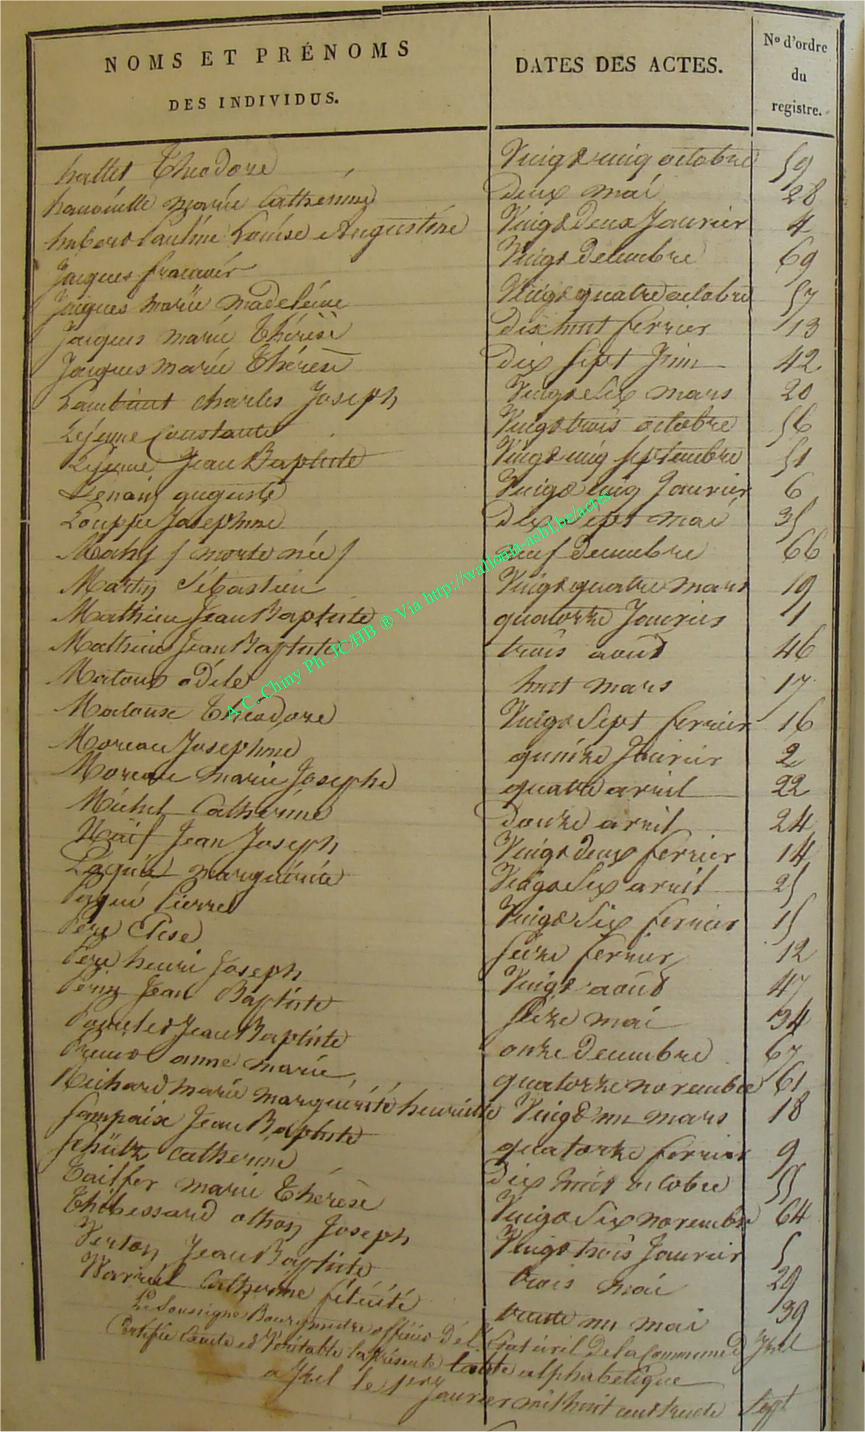 NOMS ET PRÉNOMS
DES INDIVIDUS.
DATES DES ACTES.
No d'ordre
du
registre.
hallet Théodore Vingt cinq octobre 59
marie Catherine deux mai 28
Pauline Louise Augustine Vingt deux Janvier 4
Jacques francois Vingt decembre 69
Jacques marie madeleine Vingt quatre octobre 57
Jacques marie Thérèse dix huit ferrier 13
Jacques marie Thérèse dix sept Juin 42
Lambinet charles Joseph Vingt six mars 20
Lejeune Constante Vingt trois octobre 56
Lejeune Jean Baptiste Vingt cinq septembre 51
Lenain auguste Vingt cinq Janvier 6
Louppe Josephine dix sept mai 35
Mahy ( morte née ) neuf decembre 66
Martin Sébastien Vingt quatre mars 19
Mathieu Jean Baptiste quatorze Janvier 1
Mathieu Jean Baptiste trois août 46
Matoux odéle huit mars 17
Matoux Théodore Vingt sept ferrier 16
Moreau Josephine quinze Janvier 2
Moreau marie Josephe quatre avril 22
Michel Catherine douze avril 24
Naïf Jean Joseph Vingt deux ferrier 14
marguerite Vingt six avril 25
Pierre Vingt six ferrier 15
Père Elise seize ferrier 12
Père henri Joseph Vingt août 47
Jean Baptiste seize mai 34
Jean Baptiste onze decembre 67
anne marie quatorze novembre 61
Richard marie marguerite henriette Vingt un mars 18
Sampaix Jean Baptiste quatorze ferrier 9
Schültz Catherine dix huit octobre 55
Tailfer marie Thérèse Vingt six novembre 64
Thibessard othon Joseph Vingt trois Janvier 5
Jean Baptiste trois mai 29
Catherine félicité trente un mai 39
Le Soussigné Bourgmestre officier de l'Etat civil de la Commune d'Izel
Certifie et Véritable la présente table alphabetique
a Izel le Janvier mil huit cent trente sept
A.C. Chiny Ph. JCHB ® Via http://wallonia-asbl.be/actes